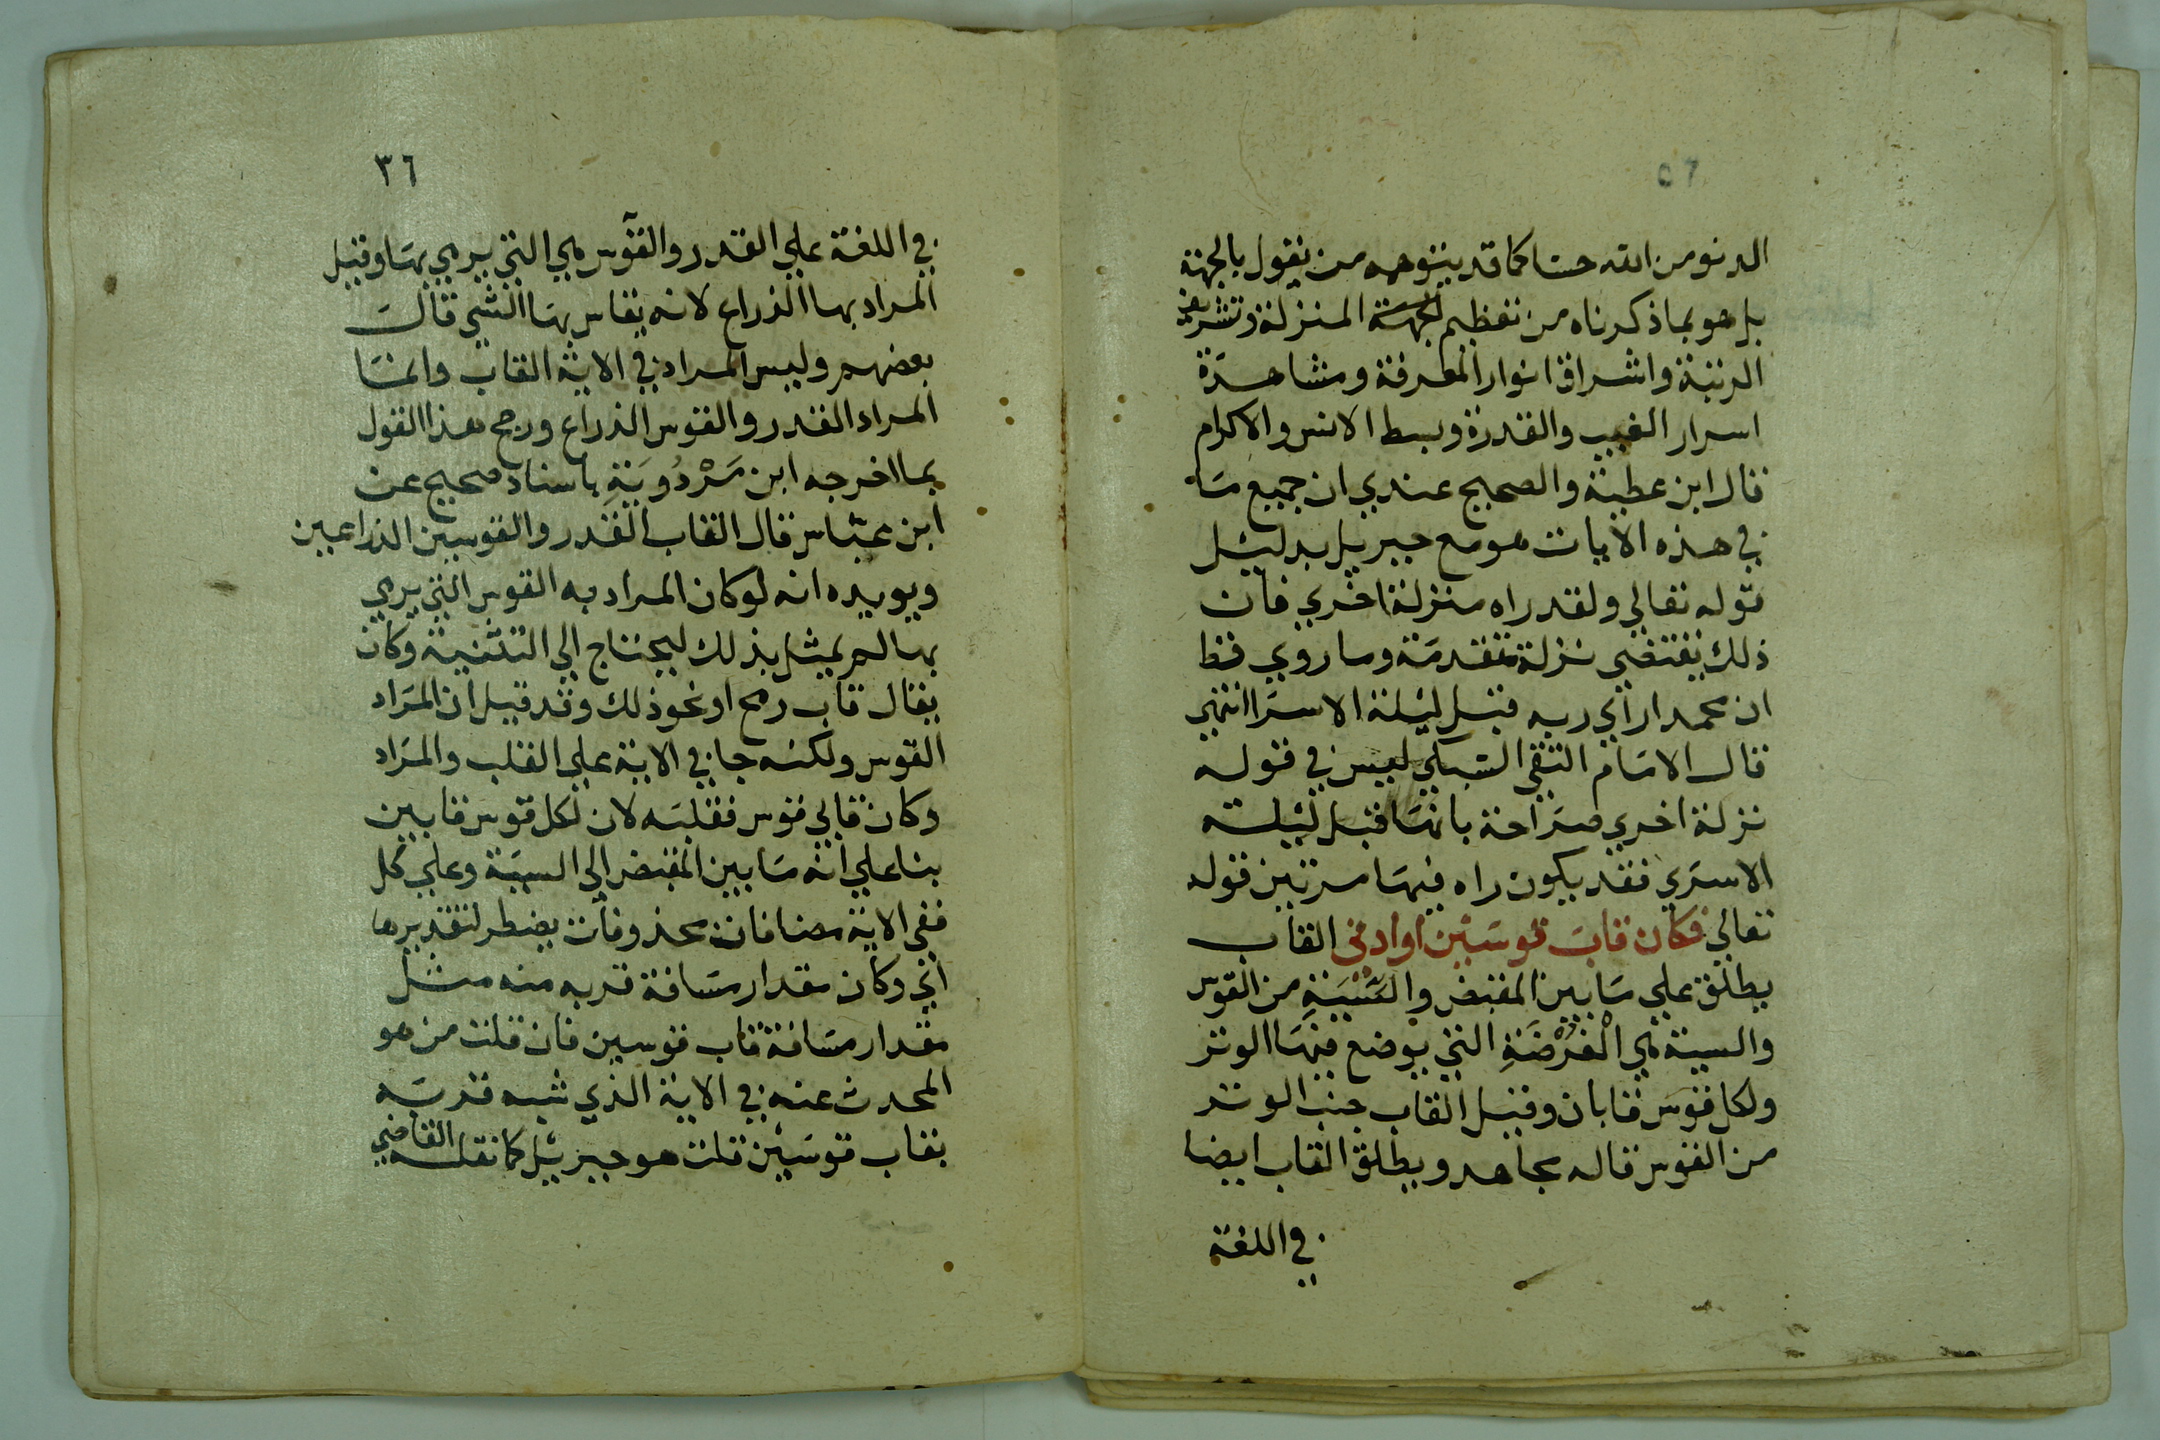 ٥٦
الدنو من الله حسا كما قد يتوهم من يقول بالجهة
بل هو بما ذكرناه من تعظيم لجهة المنزلة وتشريف
الرتبة واشراق انوار المعرفة ومشاهدة
اسرار الغيب والقدرة وبسط الانس والاكرام
قال ابن عطية والصحيح عندي ان جميع ما
في هذه الايات هو مع جبريل بدليل
قوله تعالي ولقد راه منزلة اخري فان
ذلك يقتضي نزلة متقدمة وما روي قط
ان محمدا رأي ربه قبل ليلة الاسرا انتهي
قال الامام التقي السبكي ليس في قوله
نزلة اخري صراحة بانها قبل ليلة
الاسري فقد يكون راه فيها مرتين قوله
تعالي فكان قاب قوسين او ادنى القاب
يطلق علي ما بين المقبض والسية من القوس
والسية هي الفرضة التي يوضع فيها الوتر
ولكل قوس قابان وقيل القاب جنب الوتر
من القوس قاله مجاهد ويطلق القاب ايضا
في اللغة
٣٦
في اللغة علي القدر والقوس هي التي يرمي بها وقيل
المراد بها الذراع لانه يقاس بها الشي قال
بعضهم وليس المراد في الاية القاب وانما
المراد القدر والقوس الذراع ورجح هذا القول
بما اخرجه ابن مَرْدُويَةِ باسناد صحيح عن
ابن عباس قال القاب القدر والقوسين الذراعين
ويويده انه لو كان المراد به القوس التي يرمي
بها لم يمثل بذلك ليحتاج الي التثنية وكان
يقال قاب رمح او نحو ذلك وقد قيل ان المراد
القوس ولكنه جا في الاية علي القلب والمراد
وكان قابي قوس فقلبه لان لكل قوس قابين
بنا علي انه ما بين المقبض الي السية وعلي كل
ففي الاية مضافان محذوفان يضطر لتقديرها
اي وكان مقدار مسافة قربه منه مثل
مقدار مسافة قاب قوسين فان قلت من هو
المحدث عنه في الاية الذي شبه قربه
بقاب قوسين قلت هو جبريل كما نقله القاضي